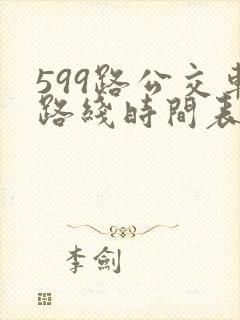 599路公交車
路綫時間表
李劍